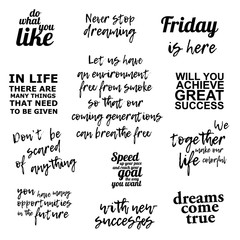 do
what
you
like
Never stop
dreaming
Friday
is here
Let us have
an environment
free from smoke
so that our
coming generations
can breathe free
IN LIFE
THERE ARE
MANY THINGS
THAT NEED
TO BE GIVEN
WILL YOU
ACHIEVE
GREAT
SUCCESS
Don't be
scared
of anything
Speed
up your pace
and reach your
goal
the way
you want
We
together
make our
life colorful
you have many
opportunities
in the future
with new
successes
dreams
come
true